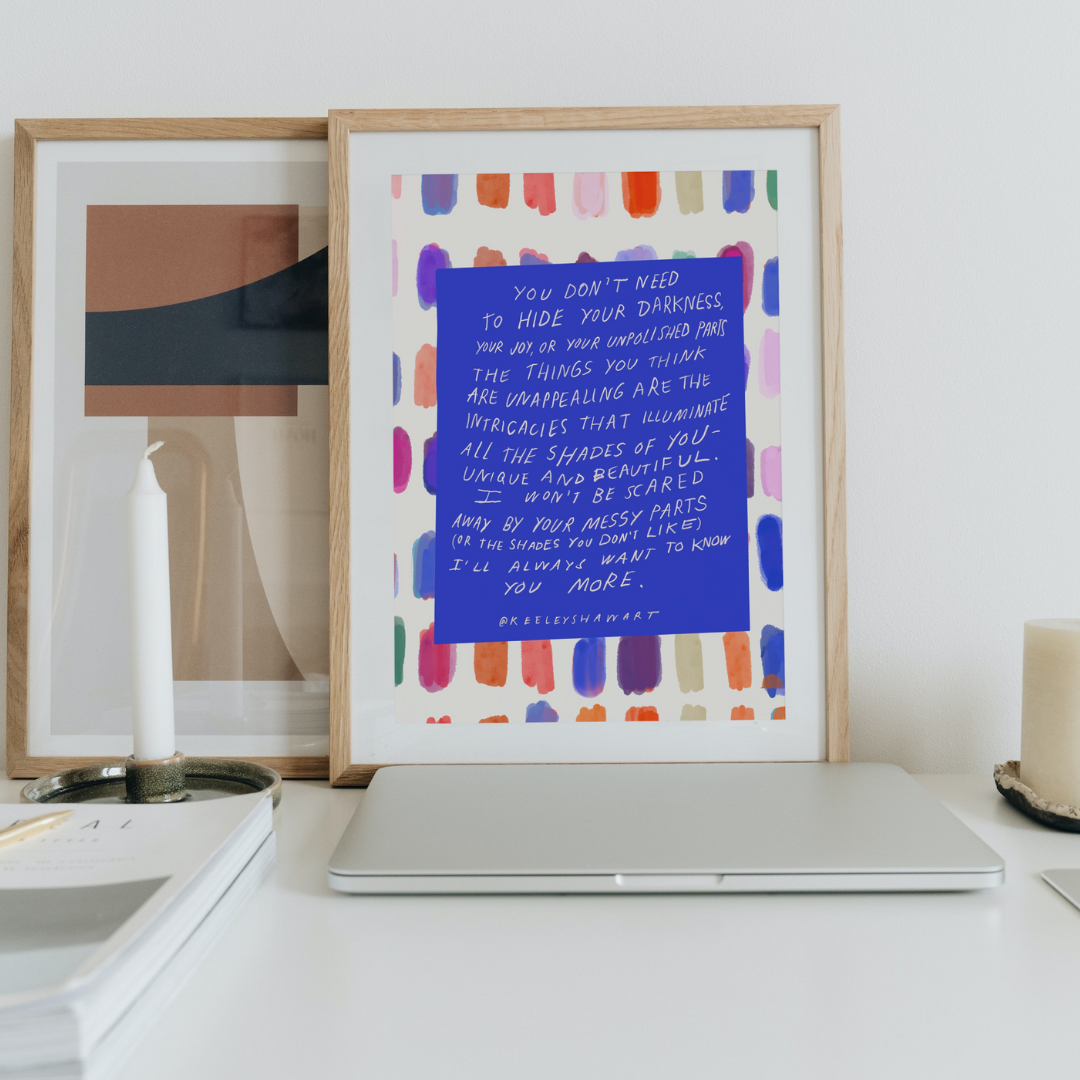 YOU DON'T NEED
TO HIDE YOUR DARKNESS,
YOUR JOY, OR YOUR UNPOLISHED PARTS
THE THINGS YOU THINK
ARE UNAPPEALING ARE THE
INTRICACIES THAT ILLUMINATE
ALL THE SHADES OF YOU-
UNIQUE AND BEAUTIFUL.
I WON'T BE SCARED
AWAY BY YOUR MESSY PARTS
(OR THE SHADES YOU DON'T LIKE)
I'LL ALWAYS WANT TO KNOW
YOU MORE.
@KEELEYSHAWART